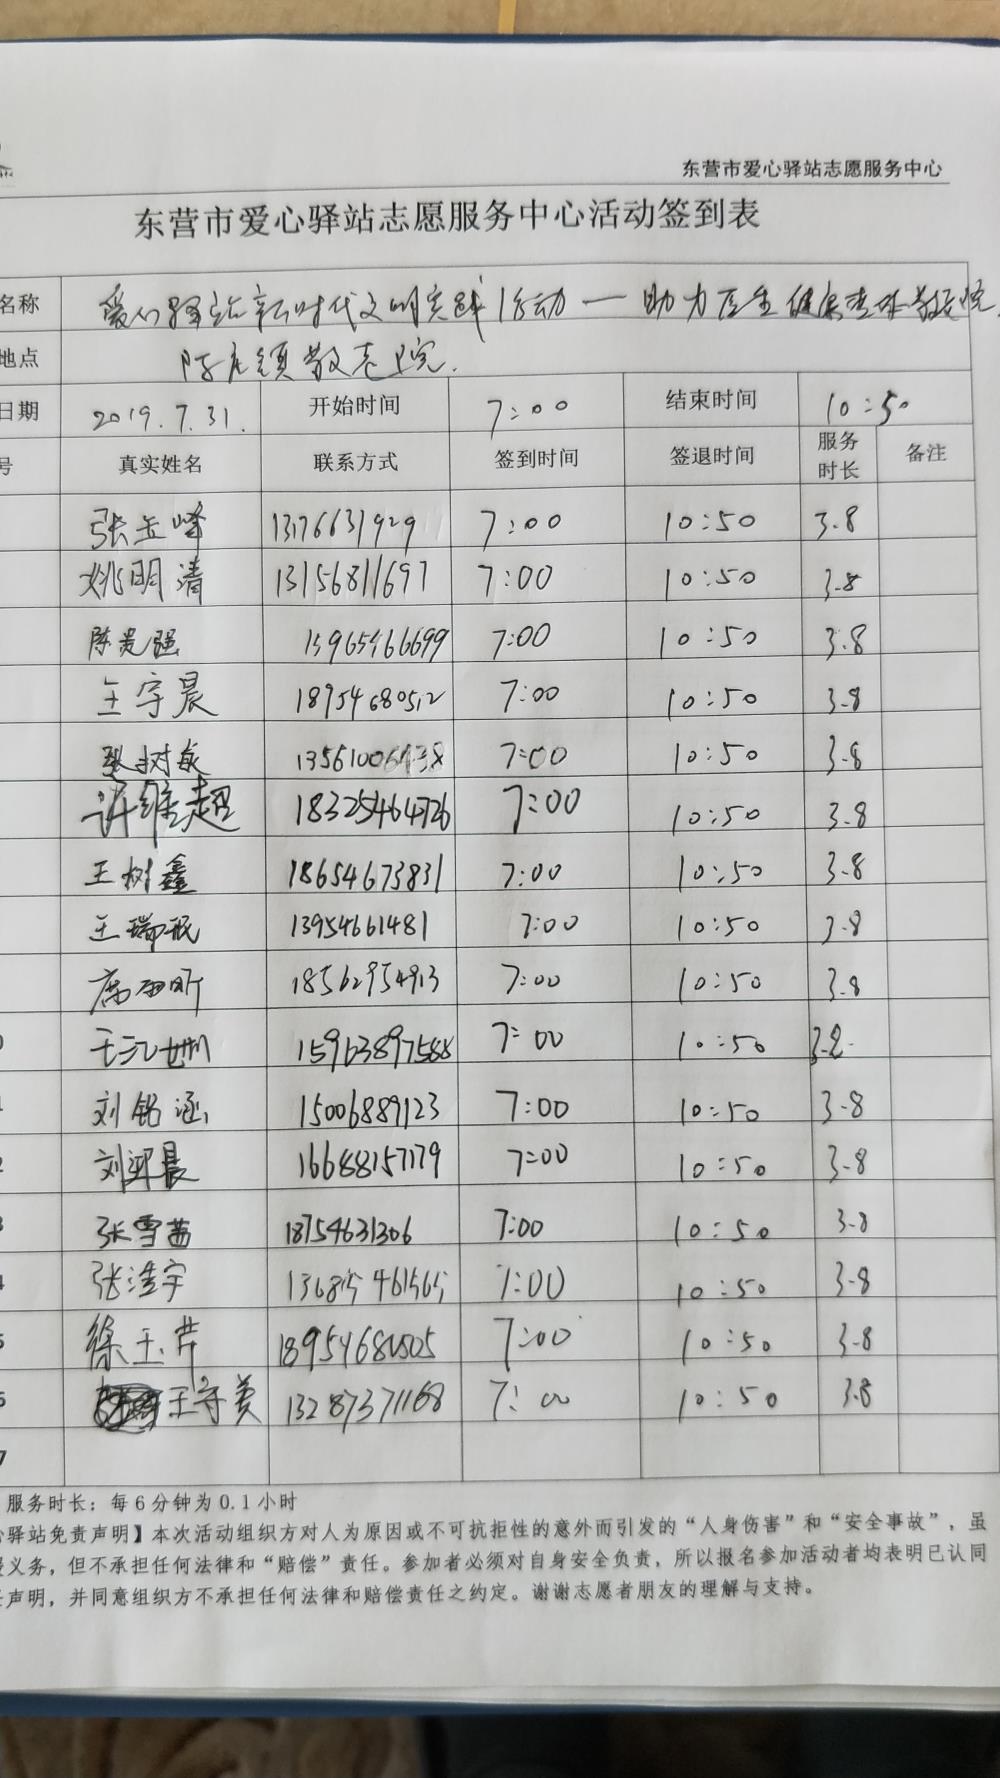 东营市爱心驿站志愿服务中心
东营市爱心驿站志愿服务中心活动签到表
名称 爱心驿站新时代文明实践活动一助力医生健康查体敬老院
地点 陈庄镇敬老院.
日期 2019.7.31. 开始时间 7:00 结束时间 10:50
号 真实姓名 联系方式 签到时间 签退时间 服务时长 备注
张玉峰 13176631929 7:00 10:50 3.8
姚明清 13156811697 7:00 10:50 3.8
陈贵强 15965466699 7:00 10:50 3.8
王宇晨 18954680512 7:00 10:50 3.8
树 7:00 10:50 3.8
许维超 18325464726 7:00 10:50 3.8
王树鑫 18654673831 7:00 10:50 3.8
王瑞 13954661481 7:00 10:50 3.8
18562954913 7:00 10:50 3.8
0 15963897588 7:00 10:50 3.8
1 刘铭涵 15006889123 7:00 10:50 3.8
2 刘晨 16688157179 7:00 10:50 3.8
3 张雪茜 18754631306 7:00 10:50 3.8
4 张浩宇 13685461565 7:00 10:50 3.8
5 徐玉芹 18954680505 7:00 10:50 3.8
6 王守美 13287371168 7:00 10:50 3.8
7
服务时长：每6分钟为0.1小时
心驿站免责声明】本次活动组织方对人为原因或不可抗拒性的意外而引发的“人身伤害”和“安全事故”，虽
义务，但不承担任何法律和“赔偿”责任。参加者必须对自身安全负责，所以报名参加活动者均表明已认同
声明，并同意组织方不承担任何法律和赔偿责任之约定。谢谢志愿者朋友的理解与支持。